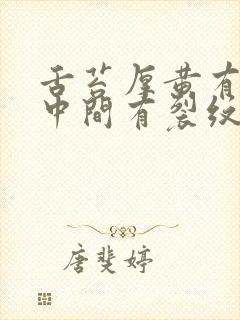 舌苔厚黄有
中间有裂纹
唐斐婷